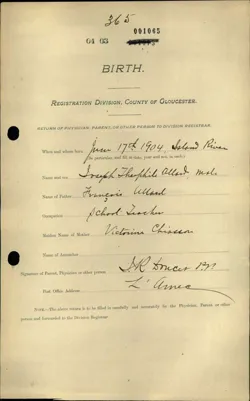 365
001045
04 03
BIRTH.
REGISTRATION DIVISION, COUNTY OF GLOUCESTER.
RETURN OF PHYSICIAN, PARENT, OR OTHER PERSON TO DIVISION REGISTRAR.
When and where born, June 17th 1904, Island River
(In particular, and fill in time, year and sex, in each.)
Name and sex, Joseph Theophile Allard, male
Name of Father, François Allard
Occupation, School Teacher
Maiden Name of Mother, Victorine Chiasson
Name of Informant,
Signature of Parent, Physician or other person,
Post Office Address, L'Amec
NOTE.—The above return is to be filled in carefully and accurately by the Physician, Parent or other
person and forwarded to the Division Registrar